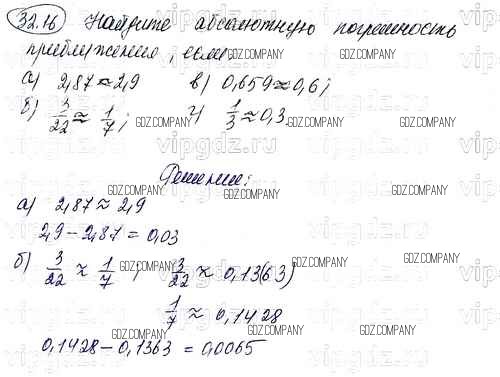 32.16 Найдите абсолютную погрешность
приближения, если:
а) 2,87 ≈ 2,9 в) 0,659 ≈ 0,6;
б) 3/22 ≈ 1/7; г) 1/3 ≈ 0,3.
Решение:
а) 2,87 ≈ 2,9
2,9 - 2,87 = 0,03
б) 3/22 ≈ 1/7; 3/22 ≈ 0,13(63)
1/7 ≈ 0,1428
0,1428 - 0,1363 = 0,0065